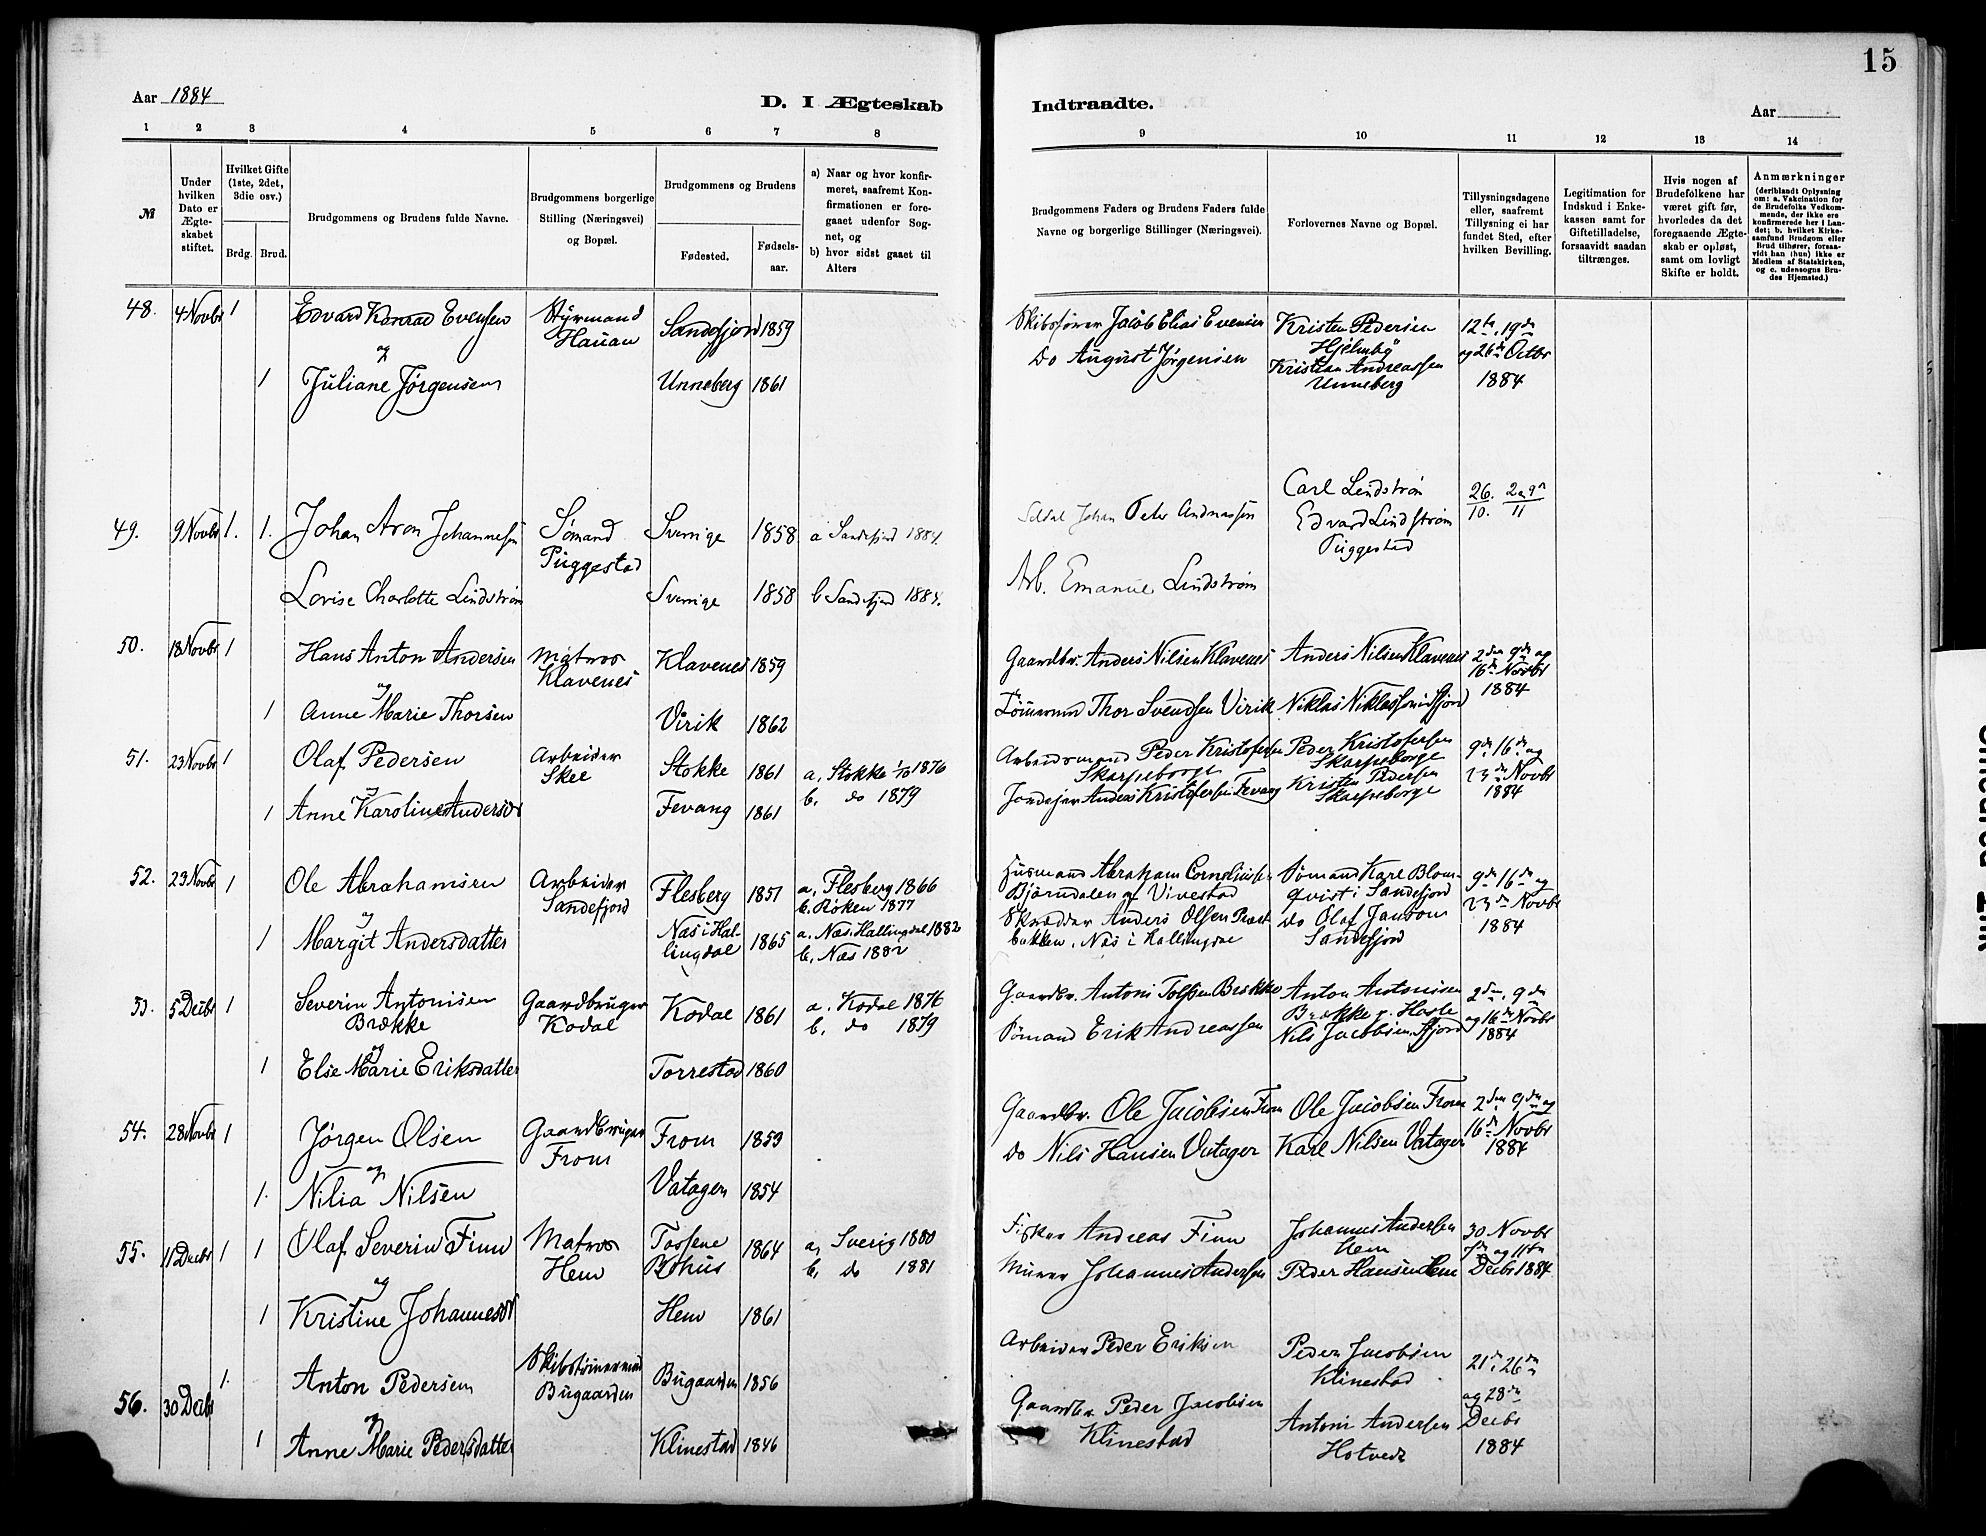 15
Aar 1884
D. I Ægteskab
Indtraadte.
Aar
1 2 3 4 5 6 7 8
9 10 11 12 13 14
№
Under hvilken Dato er Ægteskabet stiftet.
Hvilket Gifte (1ste, 2det, 3die osv.)
Brdg. Brud.
Brudgommens og Brudens fulde Navne.
Brudgommens borgerlige Stilling (Næringsvei) og Bopæl.
Brudgommens og Brudens
Fødested.
Fødsels-aar.
a) Naar og hvor konfirmeret, saafremt Konfirmationen er foregaaet udenfor Sognet, og
b) hvor sidst gaaet til Alters
Brudgommens Faders og Brudens Faders fulde Navne og borgerlige Stillinger (Næringsvei).
Forlovernes Navne og Bopæl.
Tillysningsdagene eller, saafremt Tillysning ei har fundet Sted, efter hvilken Bevilling.
Legitimation for Indskud i Enkekassen samt for Giftetilladelse, forsaavidt saadan tiltrænges.
Hvis nogen af Brudefolkene har været gift før, hvorledes da det foregaaende Ægteskab er opløst, samt om lovligt Skifte er holdt.
Anmærkninger
(deriblandt Oplysning om: a. Vakcination for de Brudefolks Vedkommende, der ikke ere konfirmerede her i Landet; b. hvilket Kirkesamfund Brudgom eller Brud tilhører, forsaavidt han (hun) ikke er Medlem af Statskirken, og c. udensogns Brudes Hjemsted.)
48. 4 Novbr 1 Edvard Konrad Evensen Styrmand Hauan Sandefjord 1859 Skibsfører Jacob Elias Evensen Kristen Pedersen Hjelmby 12te, 19de
og
1 Juliane Jørgensen Unneberg 1861 Do August Jørgensen Kristian Andreassen Unneberg og 26de Octbr 1884
49. 9 Novbr 1. 1. Johan Aron Johannesen Sømand Puggestad Sverrige 1858 a Sandefjord 1884. Johan Peter Andreassen Carl Lindstrøm 26/10. 2 a 9/11
Lovise Charlotte Lindstrøm Sverrige 1858 b Sandefjord 1884. Arb. Emanuel Lindstrøm Edvard Lindstrøm Puggestad
50. 18 Novbr 1 Hans Anton Andersen Matros Klavenes Klavenes 1859 Gaardbr. Anders Nilsen Klavenes Anders Nilsen Klavenes 2den 9de og
og
1 Anne Marie Thorsen Virik 1862 Tømmermd Thor Svendsen Virik Niklas Niklassen Sfjord 16de Novbr 1884
51. 23 Novbr 1 Olaf Pedersen Arbeider Skee Stokke 1861 a, Stokke 1/10 1876 Arbeidsmand Peder Kristofersen Skarpeborge Peder Kristofersen Skarpeborge 9de 16de og
og
1 Anne Karoline Andersdr Fevang 1861 b, do 1879 Jordejer Anders Kristofersen Fevang Kristen Pedersen Skarpeborge 23de Novbr 1884
52. 23 Novbr 1 Ole Abrahamsen Arbeider Sandefjord Flesberg 1851 a, Flesberg 1866 b. Røken 1877 Husmand Abraham Corneliussen Bjørndalen af Vivestad Sømand Karl Blomqvist i Sandefjord 9de 16de og
og
1 Margit Andersdatter Næs i Hallingdal 1865 a. Næs. Hallingdal 1882 b, Næs 1882 Skrædder Anders Olsen Præstbakken, Næs i Hallingdal do Olaf Janson Sandefjord 23de Novbr 1884
53. 5 Decbr 1 Severin Antonisen Brække Gaardbruger Kodal Kodal 1861 a. Kodal 1876 b, do 1879 Gaardbr. Antoni Brække Anton Antonisen Brække p. Hasle 2den, 9de
og
1 Else Marie Eriksdatter Torrestad 1860 Sømand Erik Andreassen Nils Jacobsen, Sfjord og 16de Novbr 1884
54. 28 Novbr 1 Jørgen Olsen Gaardbruger From From 1853 Gaardbr. Ole Jacobsen From Ole Jacobsen From 2den 9de og
og
1. Nilia Nilsen Vatager 1854 Do Nils Hansen Vatager Karl Nilsen Vatager 16de Novbr 1884
55. 11 Decbr 1 1 Olaf Severin Finn Matros Hem Tossene Bohus 1864 a, Sverig 1880 b, do 1881 Fisker Andreas Finn Johannes Andersen Hem 30 Novbr
og
1 Kristine Johannesdr Hem 1861 Murer Johannes Andersen Peder Hansen Hem 7de og 11te Decbr 1884
56. 30 Decbr 1. Anton Pedersen Skibstømmermd Bugaarden Bugaarden 1856 Arbeider Peder Eriksen Peder Jacobsen Klinestad 21de, 26de
og
1 Anne Marie Pedersdatter Klinestad 1846 Gaardbr. Peder Jacobsen Klinestad Antoni Andersen Hotvedt og 28de Decbr 1884